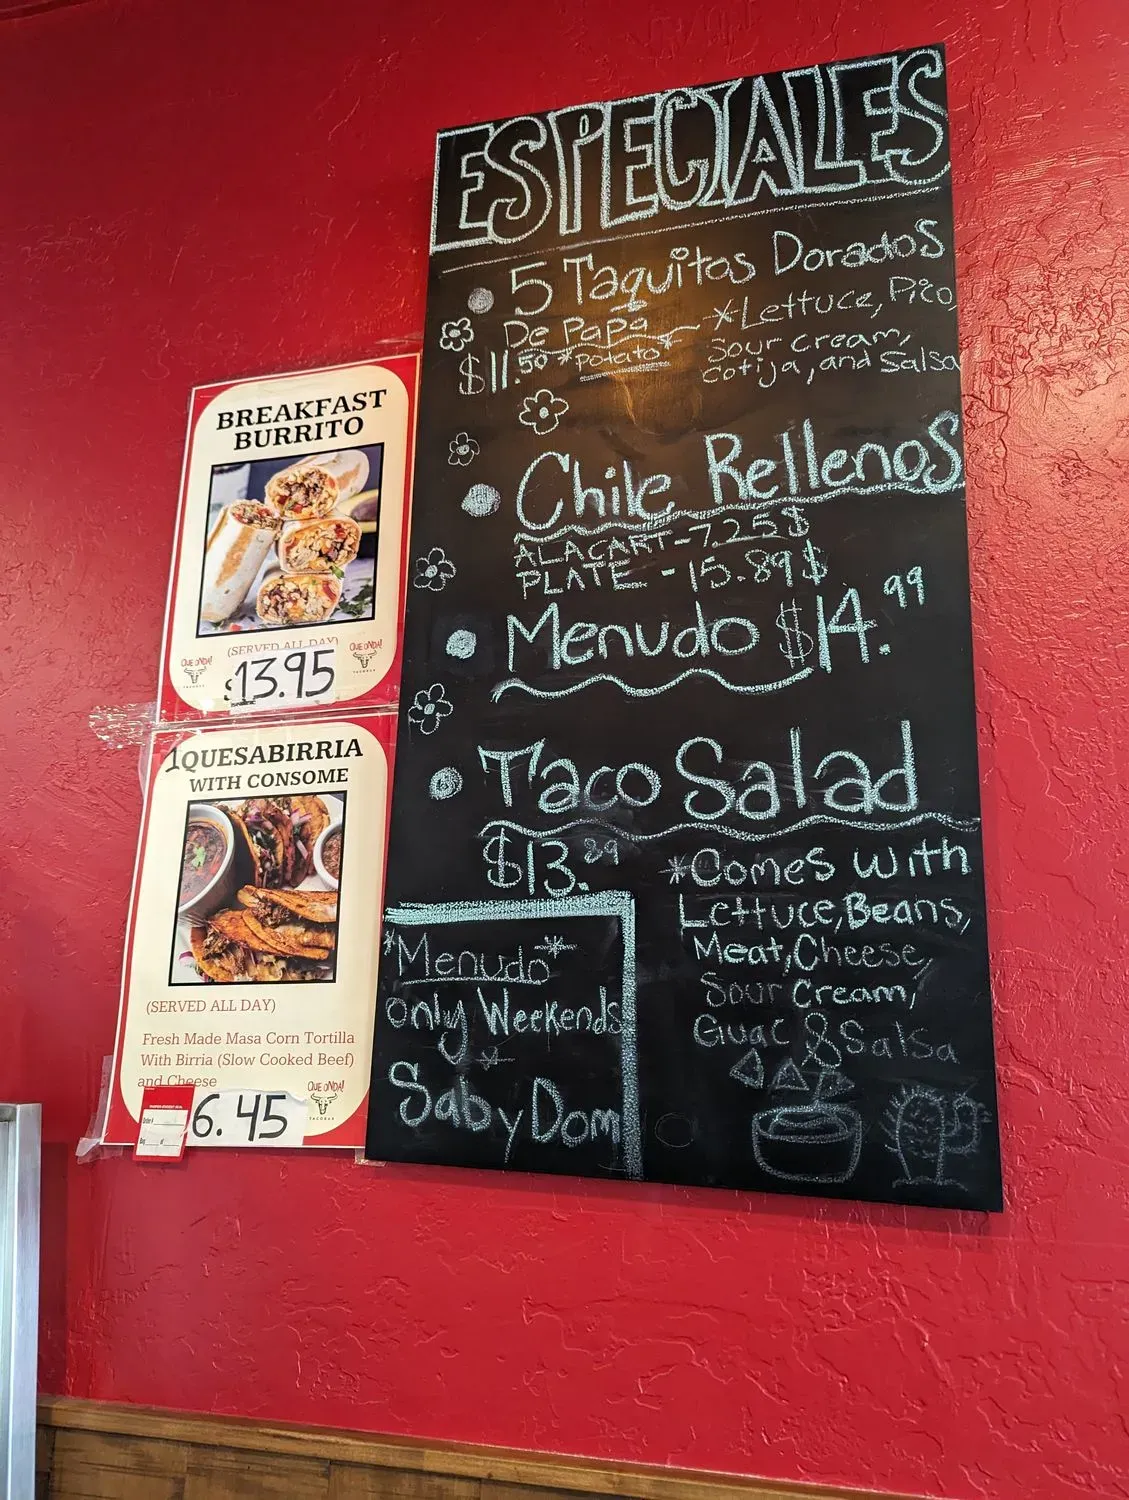 ESPECIALES
5 Taquitos Dorados
De Papa
$11.50 *potato*
*Lettuce, Pico,
Sour cream,
cotija, and Salsa
Chile Rellenos
ALACART-7.25$
PLATE -15.89$
Menudo $14.99
Taco Salad
$13.89
*Comes with
Lettuce, Beans,
Meat, Cheese,
Sour Cream,
Guac & Salsa
*Menudo*
only Weekends
Sab y Dom
BREAKFAST
BURRITO
(SERVED ALL DAY)
QUE ONDA!
TACOBAR
QUE ONDA!
TACOBAR
$13.95
1QUESABIRRIA
WITH CONSOME
(SERVED ALL DAY)
Fresh Made Masa Corn Tortilla
With Birria (Slow Cooked Beef)
and Cheese
QUE ONDA!
TACOBAR
6.45